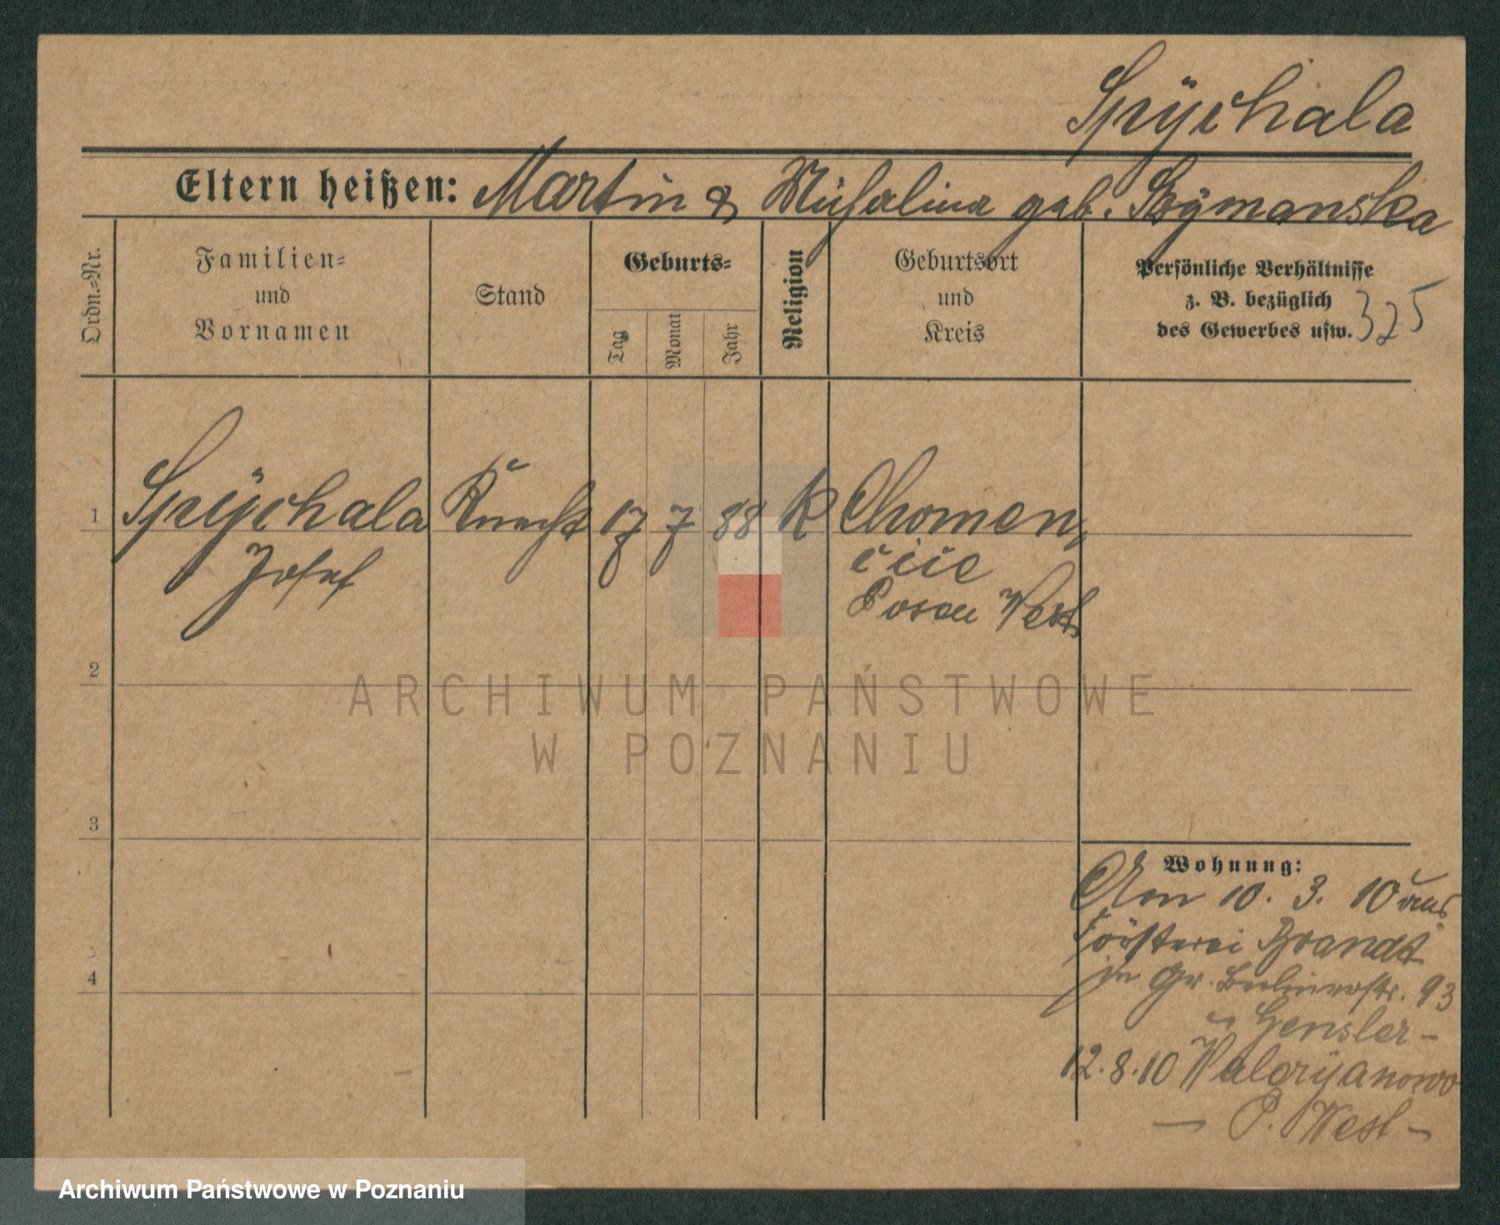 Spÿchala
Eltern heißen: Martin & Michalina geb. Szÿmanska
Ordn.=Nr.
Familien=
und
Vornamen
Stand
Geburts=
Tag
Monat
Jahr
Religion
Geburtsort
und
Kreis
Persönliche Verhältnisse
z. B. bezüglich
des Gewerbes usw.
325
1 Spÿchala Knecht 17 7 88 K Chomen,
Josef
cice
Posen West
2
3
4
Wohnung:
Von 10. 3. 10 aus
Försterei Brandt
in Gr. Berlinerstr. 93
Gensler -
12.8.10 Walerÿanowo
— P. West -
ARCHIWUM PAŃSTWOWE
W POZNANIU
Archiwum Państwowe w Poznaniu